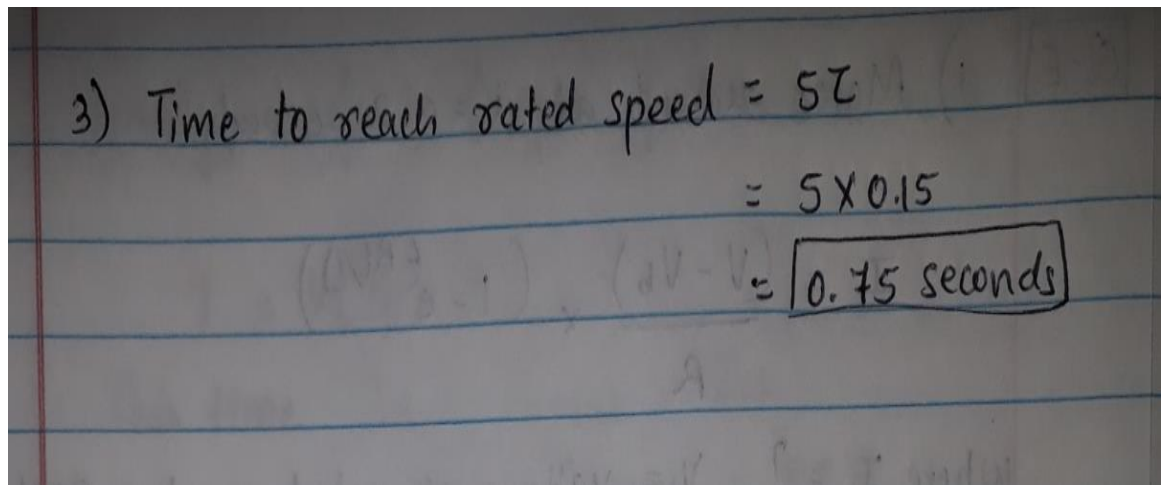 3) Time to reach rated speed = 5τ
= 5 X 0.15
= 0.75 seconds